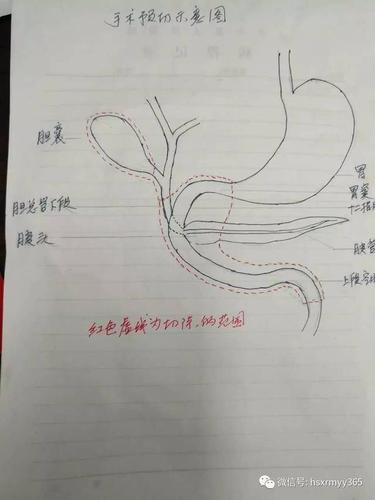 手术预切示意图
胆囊
胆总管下段
胰头
胃
胃窦
十二指
胰管
上段空
红色虚线为切除的范围
微信号: hsxrmyy365